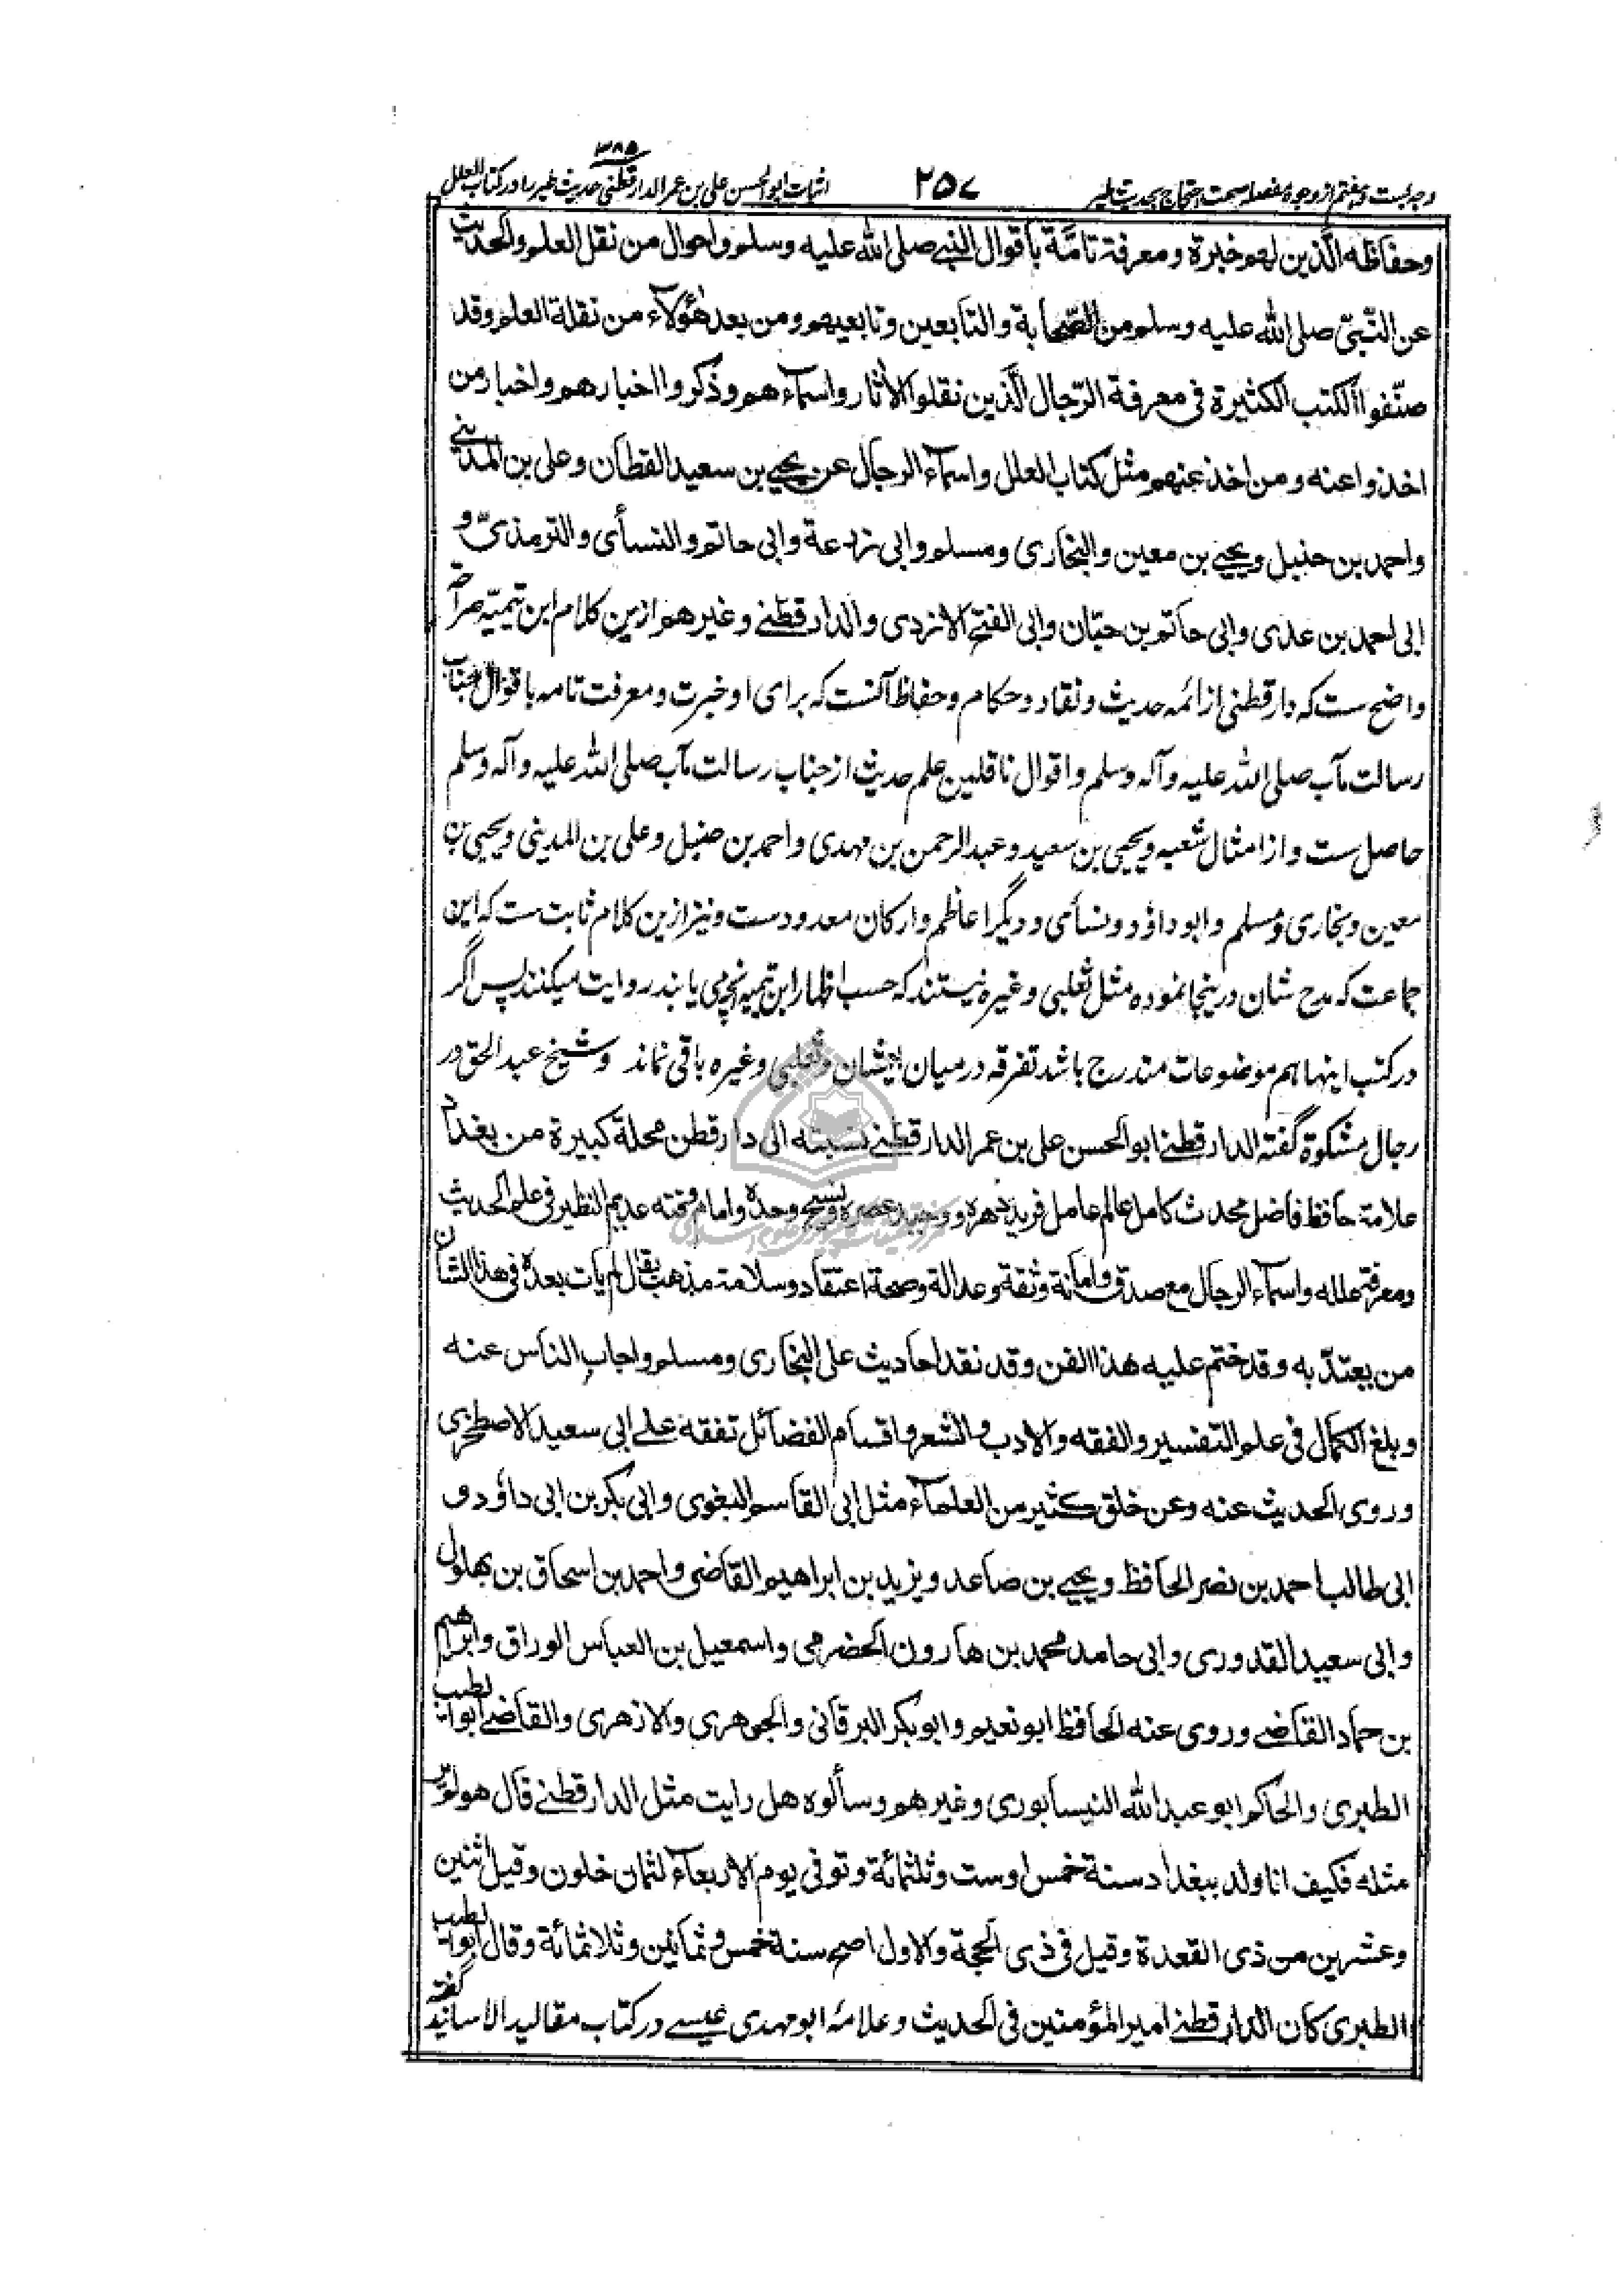 وجه بست و هفتم از وجوه مفصله صحت احتجاج بحدیث طیر
۲۵۷
۳۸۵
اثبات ابو الحسن علی بن عمر الدارقطنی حدیث طیر را در کتاب العلل
وحفاظه الّذین لهم خبرة ومعرفة تامَّة بأقوال النبی صلی الله علیه وسلم واحوال من نقل العلم والحدیث
عن النّبیّ صلی الله علیه وسلم من الصّحابة والتابعین وتابعیهم ومن بعد هؤلاء من نقلة العلم وقد
صنّفوا الکتب الکثیرة فی معرفة الرّجال الّذین نقلوا الآثار واسماءهم وذکروا اخبارهم واخبار من
اخذوا عنه ومن اخذ عنهم مثل کتاب العلل واسماء الرجال عن یحیی بن سعید القطان وعلی بن المدینی
واحمد بن حنبل ویحیی بن معین والبخاری ومسلم وابی زرعة وابی حاتم والنسأی والترمذیّ و
ابی احمد بن عدی وابی حاتم بن حبّان وابی الفتح الازدی والدارقطنی وغیرهم ازین کلام ابن تیمیّه صراحة
واضح ست که دارقطنی از ائمه حدیث ونقاد وحکام وحفاظ آنست که برای او خبرت ومعرفت تامه با قوال جناب
رسالت مآب صلی الله علیه وآله وسلم واقوال ناقلین علم حدیث از جناب رسالت مآب صلی الله علیه وآله وسلم
حاصل ست واز امثال شعبه ویحیی بن سعید وعبد الرحمن بن مهدی واحمد بن حنبل وعلی بن المدینی ویحیی بن
معین وبخاری ومسلم وابو داؤد ونسأی ودیگر اعاظم وارکان معدودست ونیز ازین کلام ثابت ست که این
جماعت که مدح شان درینجا نموده مثل ثعلبی وغیره نیستند که حسب اظهار ابن تیمیه آنچه می یابند روایت میکنند پس اگر
در کتب اینها هم موضوعات مندرج باشد تفرقه در میان ایشان وثعلبی وغیره باقی نماند وشیخ عبد الحق در
رجال مشکوة گفته الدارقطنی ابو الحسن علی بن عمر الدارقطنی نسبته الی دار قطن محلة کبیرة من بغداد
علامة حافظ فاضل محدث کامل عالم عامل فرید دهره ووحید عصره ونسیج وحده وامام وقته عدیم النظیر فی علم الحدیث
ومعرفة علله واسماء الرجال مع صدق وامانة وثقة وعدالة وصحة اعتقاد وسلامة مذهب یقال لم یات بعده فی هذا الشان
من یعتدّ به وقد ختم علیه هذا الفن وقد نقد احادیث علی البخاری ومسلم واجاب الناس عنه
وبلغ الکمال فی علم التفسیر والفقه والادب والشعر واقسام الفضائل تفقه علی ابی سعید الاصطخری
وروی الحدیث عنه وعن خلق کثیر من العلماء مثل ابی القاسم البغوی وابی بکر بن ابی داؤد و
ابی طالب احمد بن نصر الحافظ ویحیی بن صاعد ویزید بن ابراهیم القاضی واحمد بن اسحاق بن بهلول
وابی سعید القدوری وابی حامد محمد بن هارون الحضرمی واسمعیل بن العباس الوراق وابراهیم
بن حماد القاضی وروی عنه الحافظ ابو نعیم وابو بکر البرقانی والجوهری والازهری والقاضی ابو الطیب
الطبری والحاکم ابو عبد الله النیسابوری وغیرهم وسألوه هل رایت مثل الدارقطنی قال هو لم یر
مثله فکیف انا ولد ببغداد سنة خمس او ست وثلثمائة وتوفی یوم الاربعاء لثمان خلون وقیل اثنین
وعشرین من ذی القعدة وقیل فی ذی الحجة والاول اصح سنة خمس وثمانین وثلاثمائة وقال ابو الطیب
الطبری کان الدارقطنی امیر المؤمنین فی الحدیث وعلامۀ ابو مهدی عیسی در کتاب مقالید الاسانید گفته